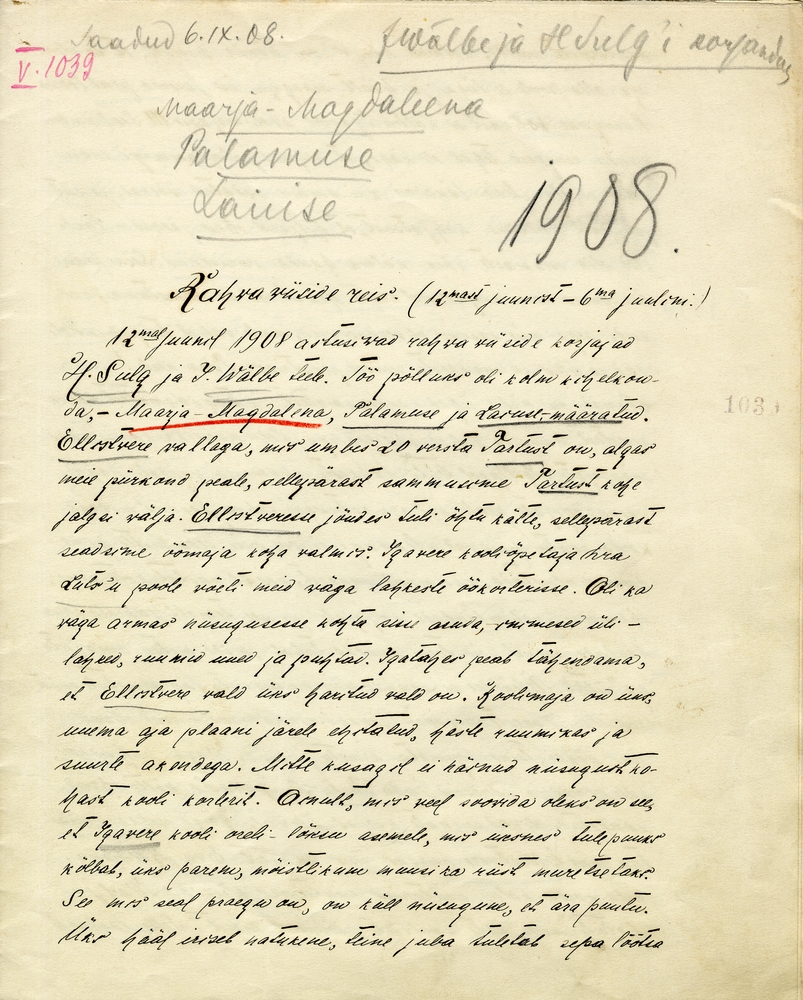 Saadud 6.IX.08.
J Wälbe ja H Sulg'i korjandus
V. 1039
Maarja-Magdaleena
Palamuse
Laiuse
1908.
Rahva wiiside reis. (12mast juunist – 6ma juulini.)
12mal juunil 1908 astusiwad rahva wiiside korjajad
H. Sulg ja J. Wälbe teele. Töö põlluks oli kolm kihelkon-
da, – Maarja-Magdalena, Palamuse ja Laiuse, – määratud.
Ellistvere vallaga, mis umbes 20 versta Tartust on, algas
meie piirkond peale, sellepärast sammusime Tartust kohe
jalgsi välja. Ellistveresse jõudes tuli õhtu kätte, sellepärast
seadsime öömaja koha valmis. Igavere kooliõpetaja hra
Luts'u poole võeti meid väga lahkeste öökorterisse. Oli ka
väga armas niisugusesse kohta sisse asuda, – inimesed üli-
lahked, ruumid uued ja puhtad. Igatahes peab tähendama,
et Ellistvere vald üks haritud vald on. Koolimaja on üks,
uuema aja plaani järele ehitatud, häste ruumikas ja
suurte akendega. Mitte kusagil ei näinud niisugust ko-
hast kooli korterit. Ainult, mis veel soovida oleks on see,
et Igavere kooli oreli-lõksu asemele, mis üksnes tulepuuks
kõlbab, üks parem, mõistlikum muusika riist muretsetaks.
See mis seal praegu on, on küll niisugune, et ära puutu.
Üks hääl iriseb natukene, teine juba tuletab sepa lõõtsa